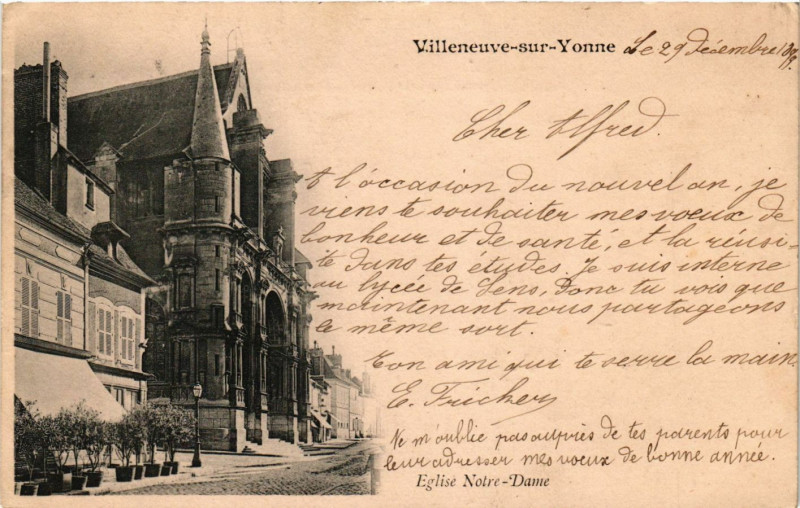 Villeneuve-sur-Yonne Le 29 Décembre
Cher Alfred.
A l'occasion du nouvel an, je
viens te souhaiter mes voeux de
bonheur et de santé, et la réusi-
te dans tes études. Je suis interne
au lycée de Sens, donc tu vois que
maintenant nous partageons
le même sort.
Ton ami qui te serre la main.
E. Fricker
Ne m'oublie pas auprès de tes parents pour
leur adresser mes voeux de bonne année.
Eglise Notre-Dame